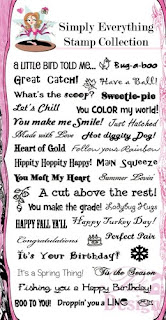 Simply Everything
Stamp Collection
A LITTLE BIRD TOLD ME... Bug-a-boo
Great Catch! Have a Ball!
What's the scoop? Sweetie-pie
Let's Chill You COLOR my world!
You make me Smile! Just Hatched
Made with Love Hot diggity Dog!
Heart of Gold Follow your Rainbow
Hippity Hoppity Happy! Main Squeeze
You Melt My Heart Summer Lovin'
A cut above the rest!
You make the grade! Ladybug Hugs
HAPPY FALL YA'LL Happy Turkey Day!
Congratulations Perfect Pair
It's Your Birthday!
It's a Spring Thing! 'Tis the Season
Fishing you a Happy Birthday!
BOO TO YOU! Droppin' you a LINE